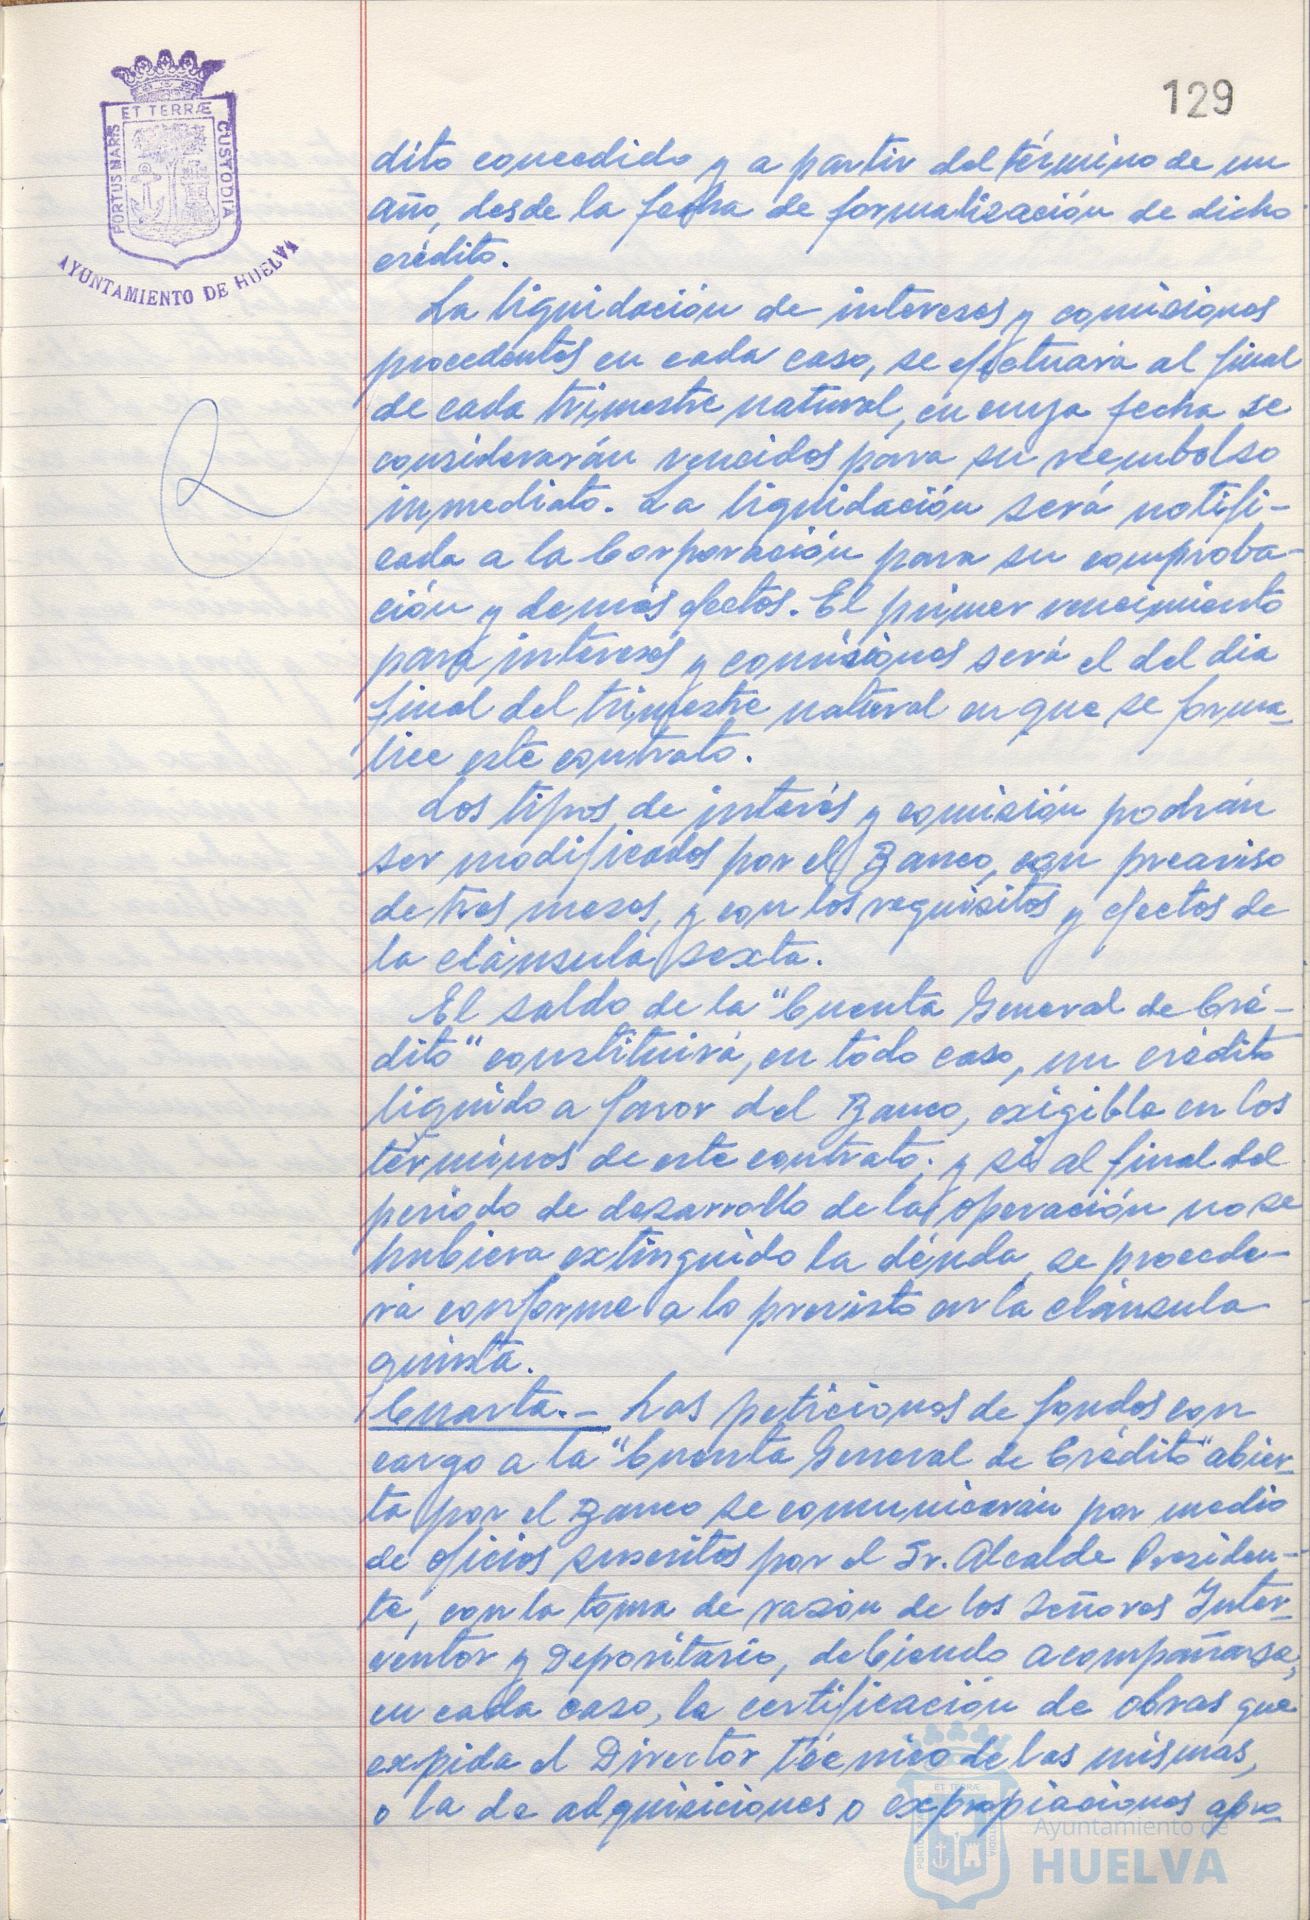 129
PORTUS MARIS ET TERRÆ CUSTODIA
AYUNTAMIENTO DE HUELVA
dito concedido y a partir del término de un
año, desde la fecha de formalización de dicho
crédito.
La liquidación de intereses y comisiones
procedentes en cada caso, se efectuará al final
de cada trimestre natural, en cuya fecha se
considerarán vencidos para su reembolso
inmediato. La liquidación será notifi-
cada a la Corporación para su comproba-
ción y demás efectos. El primer vencimiento
para intereses y comisiones será el del dia
final del trimestre natural en que se forma-
lice este contrato.
Los tipos de interés y comisión podrán
ser modificados por el Banco, con preaviso
de tres meses, y con los requisitos y efectos de
la cláusula sexta.
El saldo de la "Cuenta General de Cré-
dito" constituirá, en todo caso, un crédito
liquido a favor del Banco, exigible en los
términos de este contrato; y si al final del
periodo de desarrollo de la operación no se
hubiera extinguido la deuda, se procede-
rá conforme a lo previsto en la cláusula
quinta.
Cuarta.- Las peticiones de fondos con
cargo a la "Cuenta General de Crédito" abier-
ta por el Banco se comunicarán por medio
de oficios suscritos por el Sr. Alcalde Presiden-
te, con la toma de razón de los señores Inter-
ventor y Depositario, debiendo acompañarse,
en cada caso, la certificación de obras que
expida el Director técnico de las mismas,
o la de adquisiciones o expropiaciones apro-
Ayuntamiento de
HUELVA